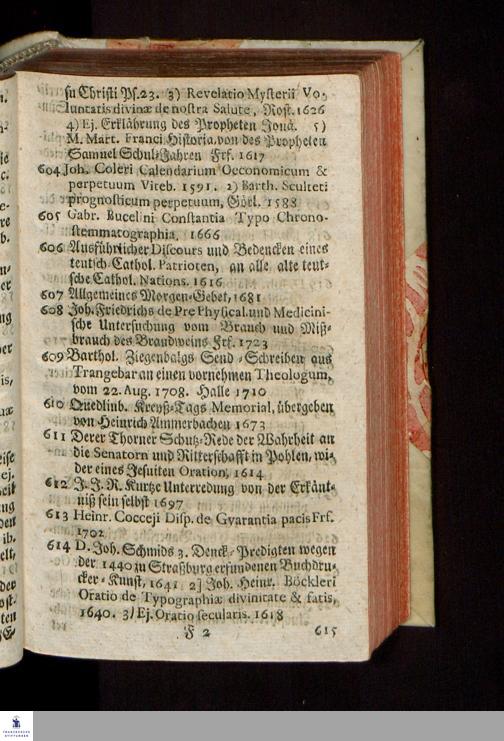 su Christi Ps.23. 3) Revelatio Mysterii Vo-
luntatis divinæ de nostra Salute, Rost. 1626
4) Ej. Erklährung des Propheten Jonä. 5)
M. Mart. Franci Historia von des Propheten
Samuel Schul-Jahren Frf. 1617
604 Joh. Coleri Calendarium Oeconomicum &
perpetuum Viteb. 1591. 2) Barth. Sculteti
prognosticum perpetuum, Görl. 1588
605 Gabr. Bucelini Constantia Typo Chrono-
stemmatographia, 1666
606 Ausführlicher Discours und Bedencken eines
teutsch-Cathol. Patrioten, an alle alte teut-
sche Cathol. Nations. 1616
607 Allgemeines Morgen-Gebet, 1681
608 Joh. Friedrichs de Pre Physical. und Medicini-
sche Untersuchung vom Brauch und Miß-
brauch des Brandweins Frf. 1723
609 Barthol. Ziegenbalgs Send-Schreiben aus
Trangebar an einen vornehmen Theologum,
vom 22. Aug. 1708. Halle 1710
610 Quedlinb. Kreyß-Tags Memorial, übergeben
von Heinrich Ammerbachen 1673
611 Derer Thorner Schutz-Rede der Wahrheit an
die Senatorn und Ritterschafft in Pohlen, wi-
der eines Jesuiten Oration, 1614
612 J. J. R. Kurtze Unterredung von der Erkänt-
niß sein selbst 1697
613 Heinr. Cocceji Disp. de Gvarantia pacis Frf.
1702
614 D. Joh. Schmids 3. Denck-Predigten wegen
der 1440 zu Straßburg erfundenen Buchdru-
cker-Kunst, 1641 2] Joh. Heinr. Böckleri
Oratio de Typographiæ divinitate & fatis,
1640. 3) Ej. Oratio secularis. 1618
F 2 615
FRANCKESCHE
STIFTUNGEN